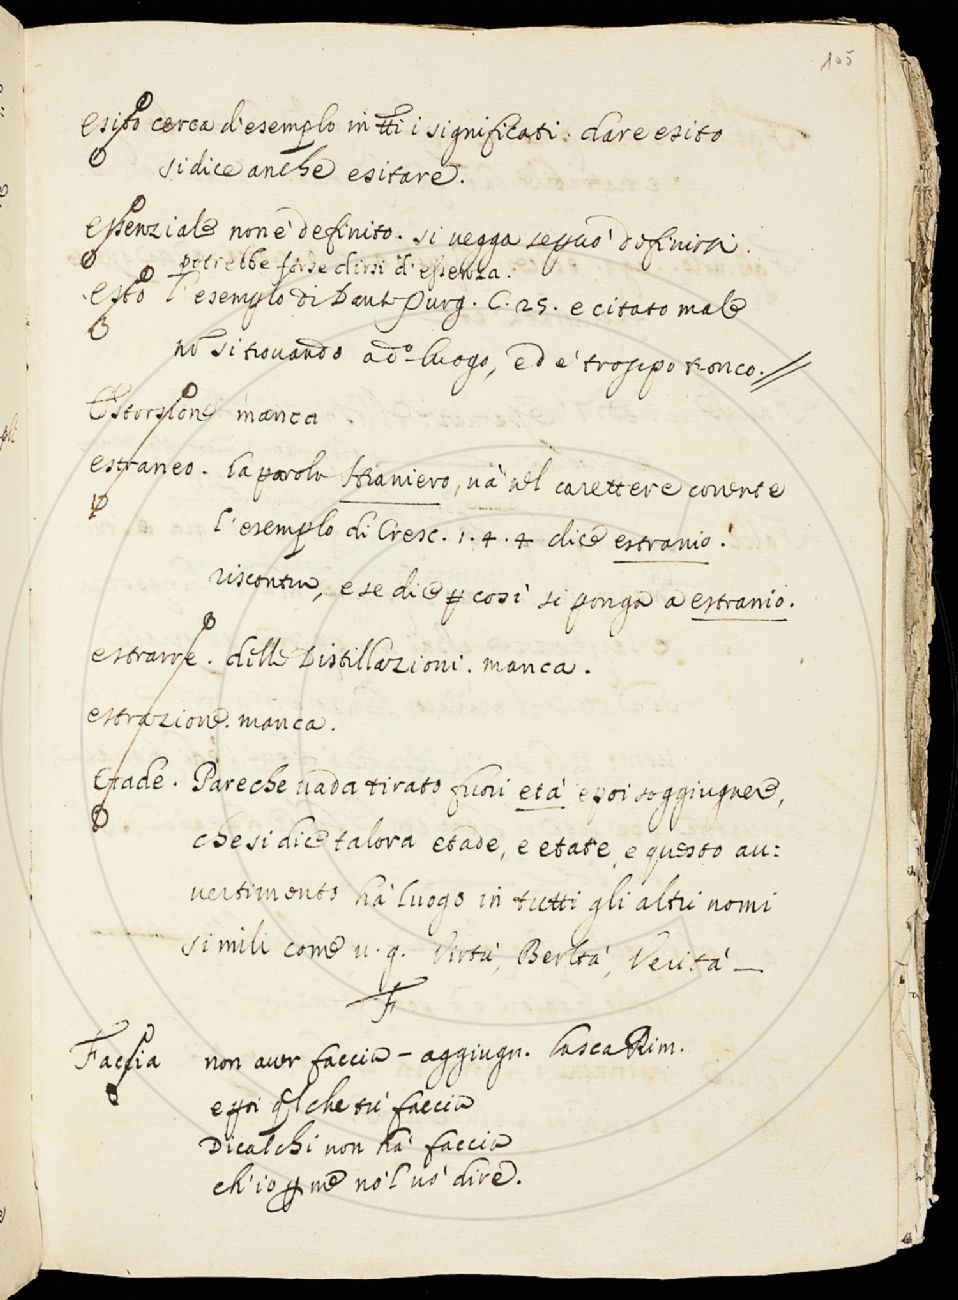 105
esito cerca d'esemplo in tti i significati: dare esito
si dice anche esitare.
essenziale non è definito. si vegga se può definirsi.
potrebbe forse dirsi d'essenza.
esto l'esemplo di Dante Purg. C. 25. e citato male
nō si trovando a do. luogo, ed e' troppo tronco.
Estorsione manca
estraneo. la parola straniero, và nel carettere corente
l'esemplo di Cresc. 1. 4. 4 dice estranio.
riscontra, e se dice così si ponga a estranio.
estrarre. delle Distillazioni. manca.
estrazione. manca.
Etade. Pare che vada tirato fuori età e poi soggiugnere,
che si dice talora etade, e etate, e questo au:
uertimento hà luogo in tutti gli altri nomi
simili come u. g. Virtù, Beltà, Verità —
F
Faccia non aver faccia – aggiugn. Lasca Rim.
e poi ql che tù faccia
Dical chi non hà faccia
ch'io p me nò 'l uò dire.